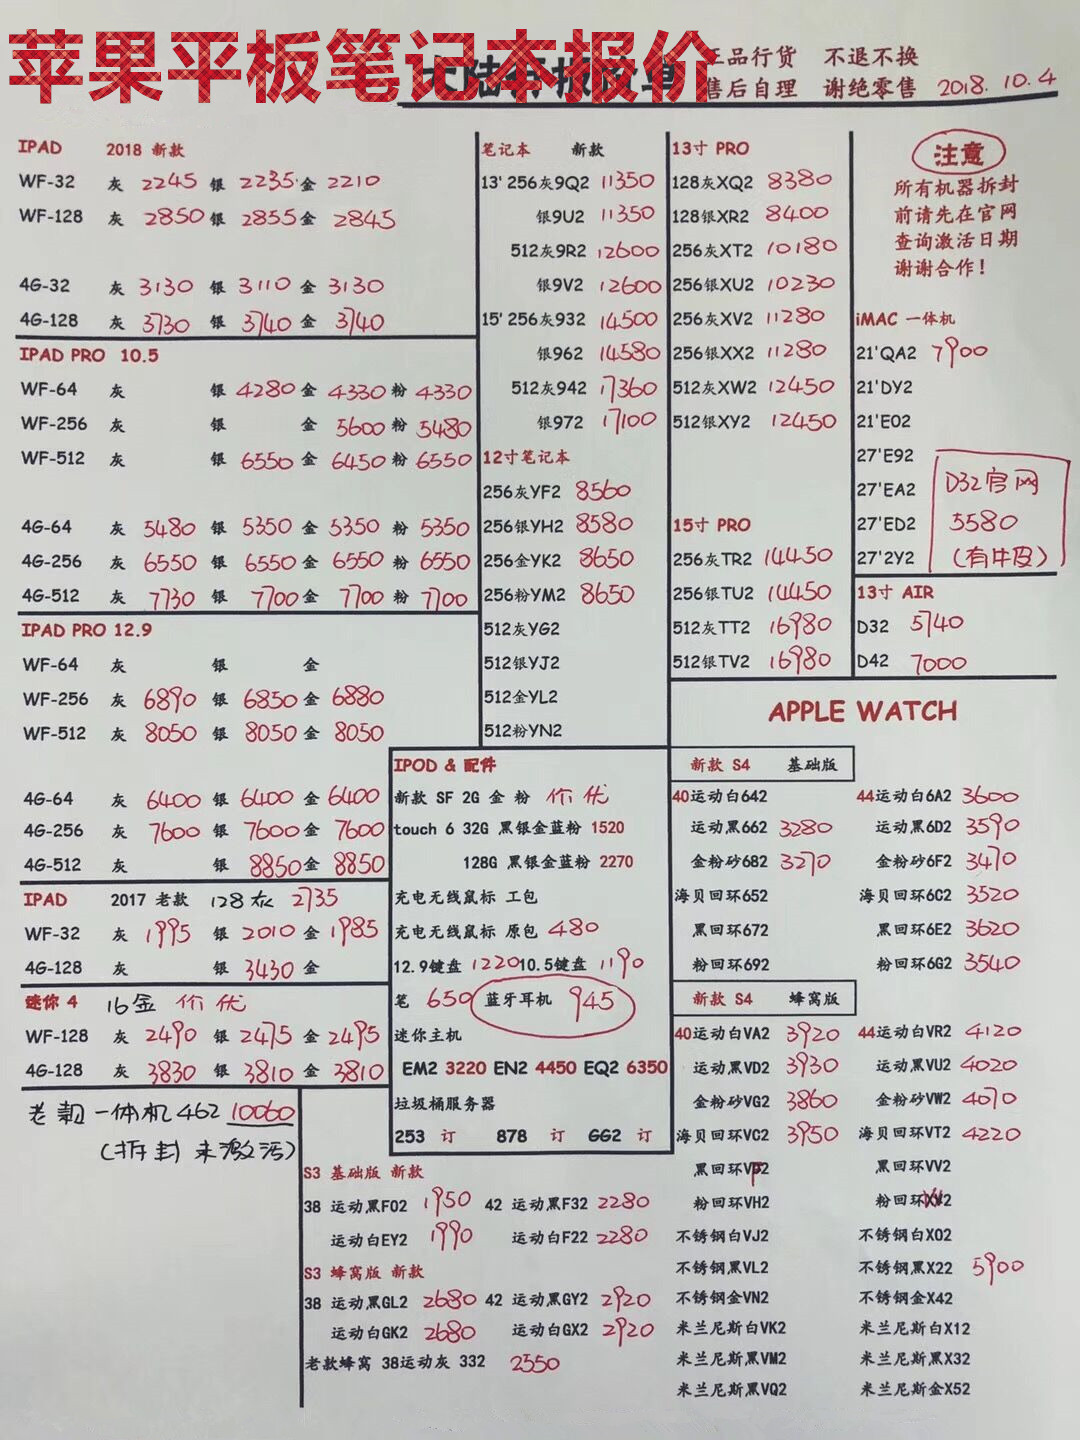 苹果平板笔记本报价
正品行货 不退不换
售后自理 谢绝零售 2018.10.4
IPAD 2018 新款
WF-32 灰 2245 银 2235 金 2210
WF-128 灰 2850 银 2855 金 2845
4G-32 灰 3130 银 3110 金 3130
4G-128 灰 3730 银 3740 金 3740
IPAD PRO 10.5
WF-64 灰 银 4280 金 4330 粉 4330
WF-256 灰 银 金 5600 粉 5480
WF-512 灰 银 6550 金 6450 粉 6550
4G-64 灰 5480 银 5350 金 5350 粉 5350
4G-256 灰 6550 银 6550 金 6550 粉 6550
4G-512 灰 7730 银 7700 金 7700 粉 7700
IPAD PRO 12.9
WF-64 灰 银 金
WF-256 灰 6890 银 6850 金 6880
WF-512 灰 8050 银 8050 金 8050
4G-64 灰 6400 银 6400 金 6400
4G-256 灰 7600 银 7600 金 7600
4G-512 灰 银 8850 金 8850
IPAD 2017 老款 128灰 2735
WF-32 灰 1995 银 2010 金 1985
4G-128 灰 银 3430 金
迷你 4 16金 价优
WF-128 灰 2490 银 2475 金 2495
4G-128 灰 3830 银 3810 金 3810
老款一体机462 10060
(拆封未激活)
笔记本 新款
13' 256灰9Q2 11350
银9U2 11350
512灰9R2 12600
银9V2 12600
15' 256灰932 14500
银962 14580
512灰942 17360
银972 17100
12寸笔记本
256灰YF2 8560
256银YH2 8580
256金YK2 8650
256粉YM2 8650
512灰YG2
512银YJ2
512金YL2
512粉YN2
13寸 PRO
128灰XQ2 8380
128银XR2 8400
256灰XT2 10180
256银XU2 10230
256灰XV2 11280
256银XX2 11280
512灰XW2 12450
512银XY2 12450
15寸 PRO
256灰TR2 14450
256银TU2 14450
512灰TT2 16980
512银TV2 16980
注意
所有机器拆封
前请先在官网
查询激活日期
谢谢合作!
iMAC 一体机
21'QA2 7900
21'DY2
21'E02
27'E92
27'EA2
27'ED2
27'2Y2
D32官网
5580
(有牛皮)
13寸 AIR
D32 5740
D42 7000
IPOD & 配件
新款 SF 2G 金 粉 价优
touch 6 32G 黑银金蓝粉 1520
128G 黑银金蓝粉 2270
充电无线鼠标 工包
充电无线鼠标 原包 480
12.9键盘 1220 10.5键盘 1190
笔 650 蓝牙耳机 945
迷你主机
EM2 3220 EN2 4450 EQ2 6350
垃圾桶服务器
253 订 878 订 GG2 订
S3 基础版 新款
38 运动黑F02 1950 42 运动黑F32 2280
运动白EY2 1990 运动白F22 2280
S3 蜂窝版 新款
38 运动黑GL2 2680 42 运动黑GY2 2920
运动白GK2 2680 运动白GX2 2920
老款蜂窝 38运动灰 332 2550
APPLE WATCH
新款 S4 基础版
40运动白642 44运动白6A2 3600
运动黑662 3280 运动黑6D2 3590
金粉砂682 3270 金粉砂6F2 3470
海贝回环652 海贝回环6C2 3520
黑回环672 黑回环6E2 3620
粉回环692 粉回环6G2 3540
新款 S4 蜂窝版
40运动白VA2 3920 44运动白VR2 4120
运动黑VD2 3930 运动黑VU2 4020
金粉砂VG2 3860 金粉砂VW2 4070
海贝回环VC2 3950 海贝回环VT2 4220
黑回环VF2 黑回环VV2
粉回环VH2 粉回环
不锈钢白VJ2 不锈钢白X02
不锈钢黑VL2 不锈钢黑X22 5900
不锈钢金VN2 不锈钢金X42
米兰尼斯白VK2 米兰尼斯白X12
米兰尼斯黑VM2 米兰尼斯黑X32
米兰尼斯黑VQ2 米兰尼斯金X52